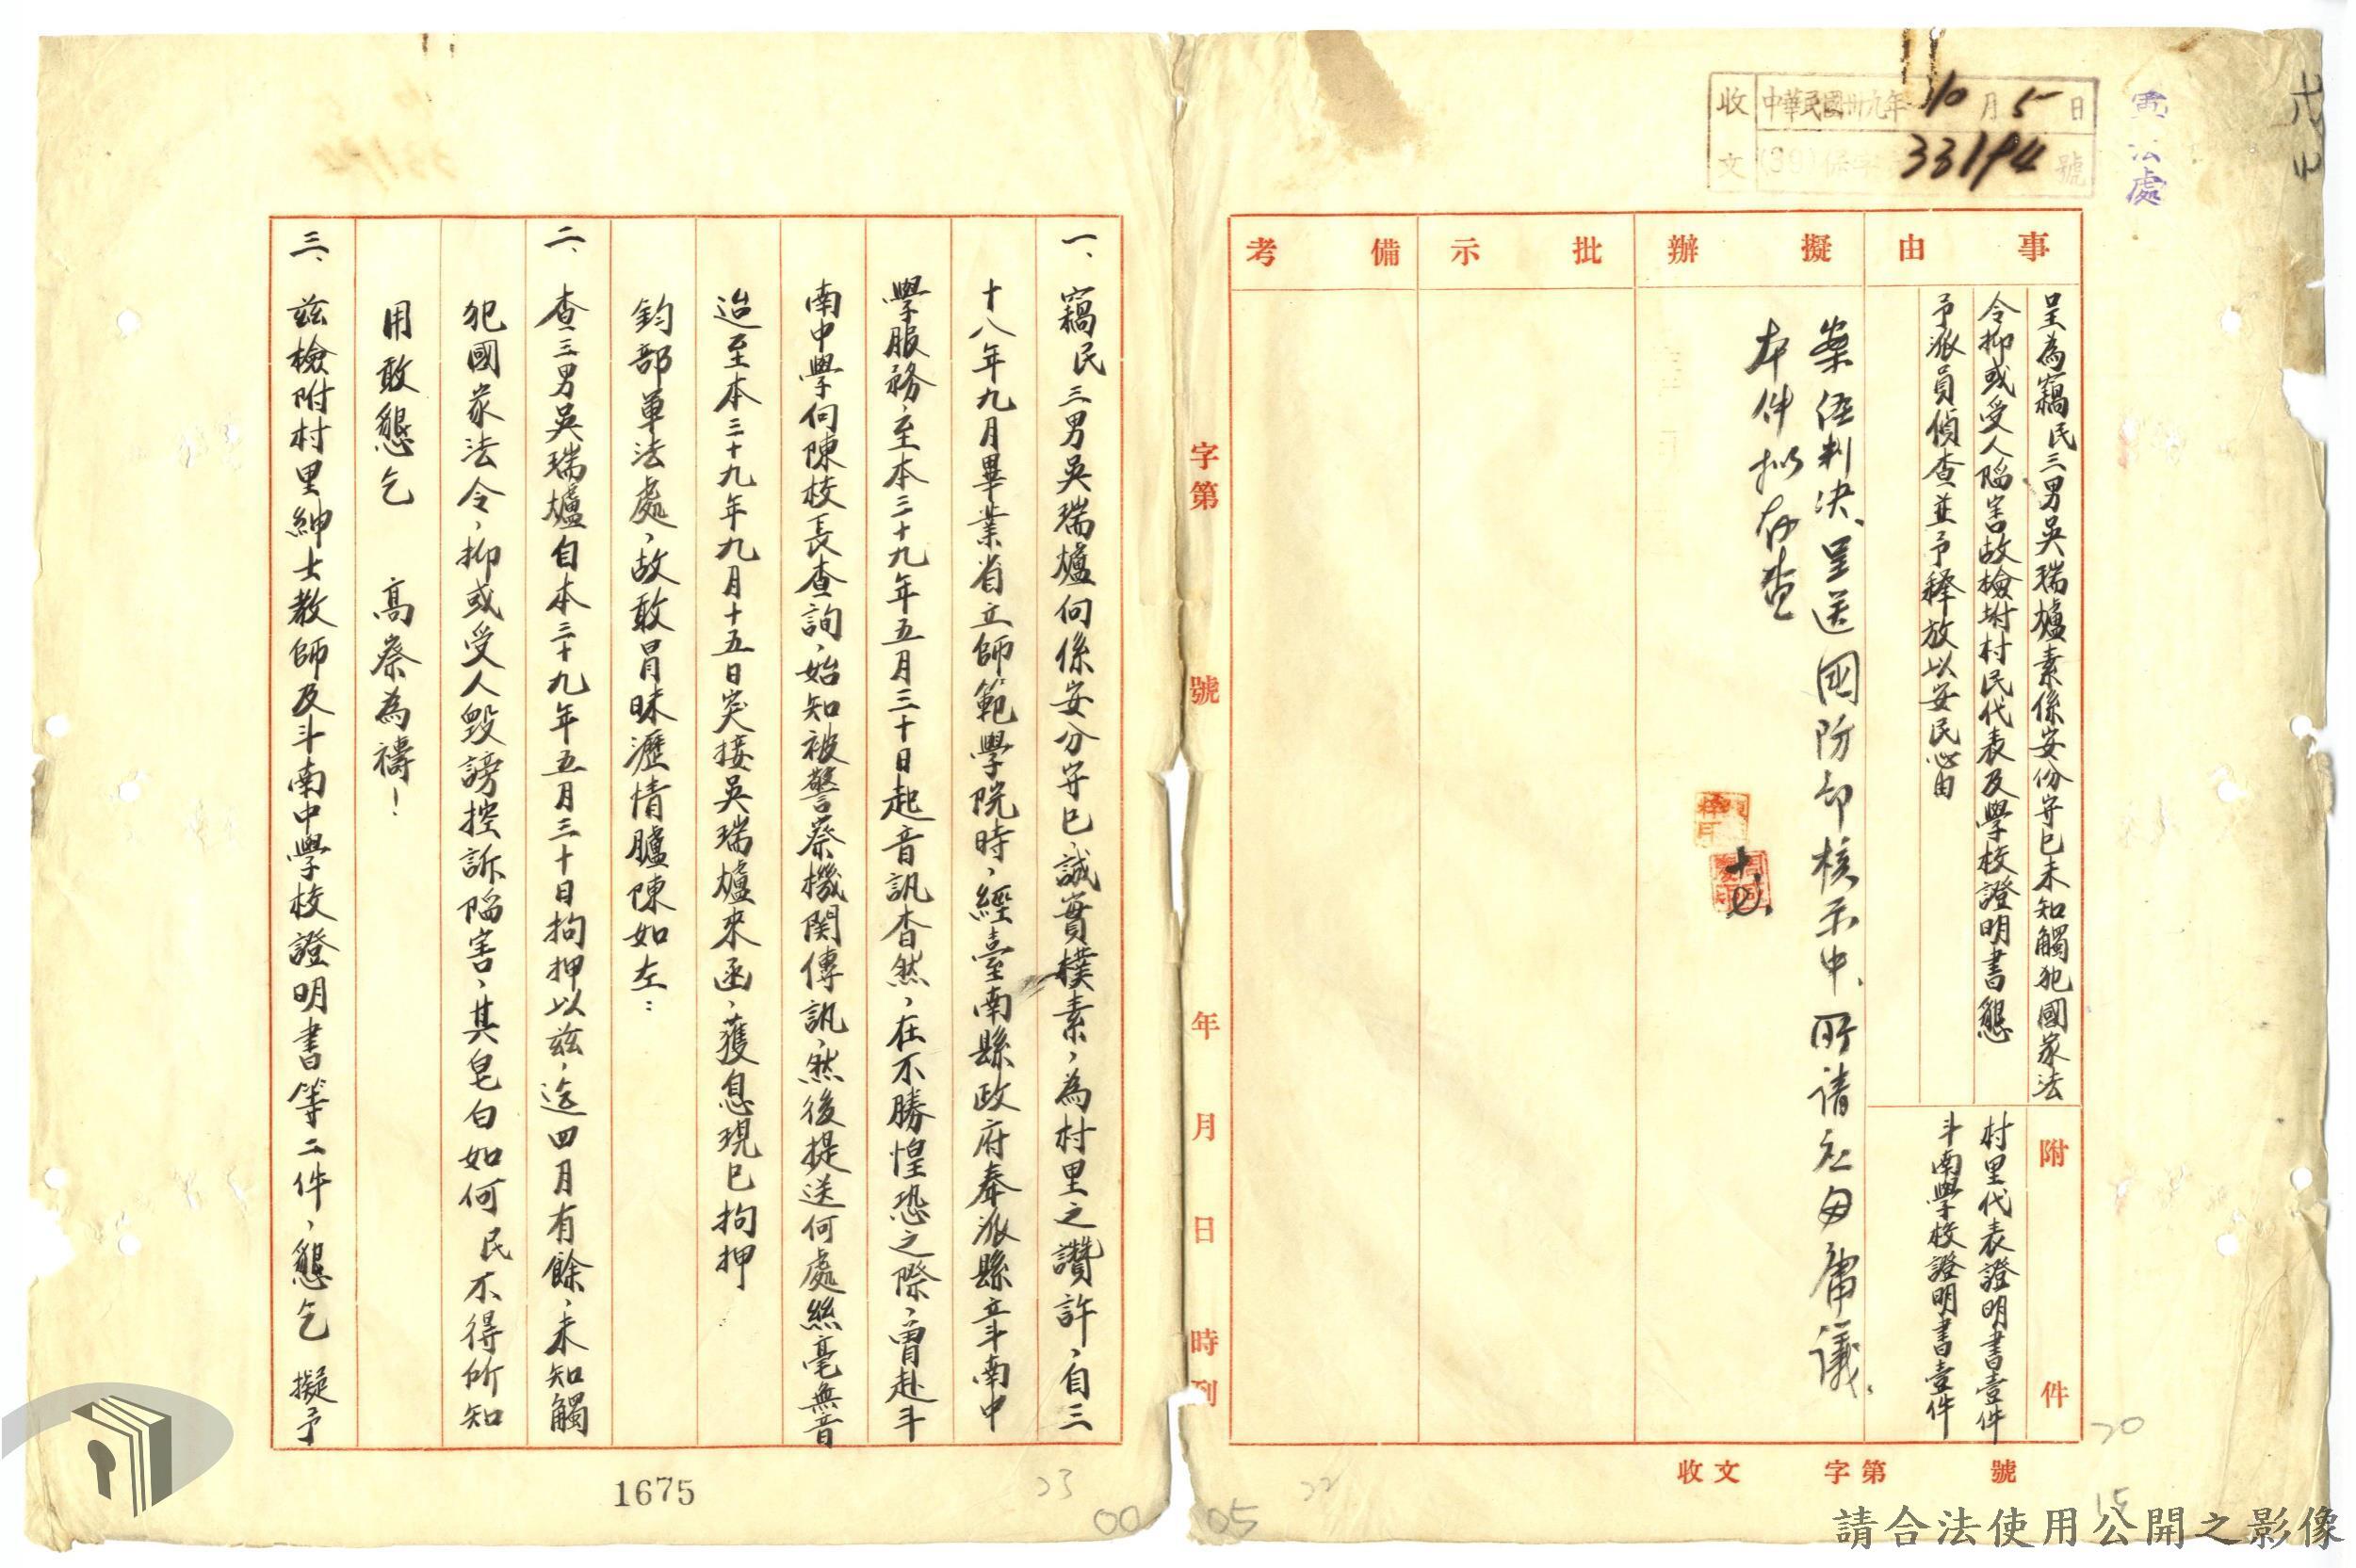 軍法處
收文 中華民國卅九年10月5日
(39)保字 33194 號
事由
呈為竊民三男吳瑞爐素係安份守己未知觸犯國家法
令抑或受人陷害故檢附村民代表及學校證明書懇
予派員偵查並予释放以安民心由
附件
村里代表證明書壹件
斗南學校證明書壹件
擬辦
案經判决、呈送國防部核示中、所請应毋庸議、
本件拟存查
批示
備考
收文 字第 號
字第 號 年 月 日 時到
一、竊民三男吳瑞爐向係安分守己、誠實樸素，為村里之讚許，自三
十八年九月畢業省立師範學院時，經臺南縣政府奉派縣立斗南中
學服務，至本三十九年五月三十日起音訊杳然，在不勝惶恐之際，曾赴斗
南中學向陳校長查詢，始知被警察機関傳訊，然後提送何處絲毫無音
迨至本三十九年九月十五日突接吳瑞爐來函，獲息現已拘押
鈞部軍法處，故敢冒昧瀝情臚陳如左：
二、查三男吳瑞爐自本三十九年五月三十日拘押以兹，迄四月有餘，未知觸
犯國家法令，抑或受人毀謗控訴陷害，其皂白如何民不得所知
用敢懇乞 高察為禱！
三、兹檢附村里紳士教師及斗南中學校證明書等二件，懇乞 擬予
1675
23
22
20
15
00
05
請合法使用公開之影像